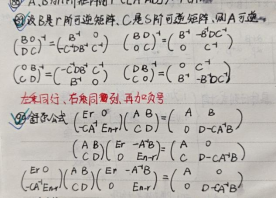 设B是r阶可逆矩阵, C是S阶可逆矩阵, 则A可逆
(B 0 / D C)⁻¹ = (B⁻¹ 0 / -C⁻¹DB⁻¹ C⁻¹) (B D / 0 C)⁻¹ = (B⁻¹ -B⁻¹DC⁻¹ / 0 C⁻¹)
(0 B / C D)⁻¹ = (-C⁻¹DB⁻¹ C⁻¹ / B⁻¹ 0) (D B / C 0)⁻¹ = (0 C⁻¹ / B⁻¹ -B⁻¹DC⁻¹)
左乘同行, 右乘同列, 再加负号
公式 (Er 0 / -CA⁻¹ En-r)(A B / C D) = (A B / 0 D-CA⁻¹B)
(A B / C D)(Er -A⁻¹B / 0 En-r) = (A 0 / C D-CA⁻¹B)
(Er 0 / -CA⁻¹ En-r)(A B / C D)(Er -A⁻¹B / 0 En-r) = (A 0 / 0 D-CA⁻¹B)